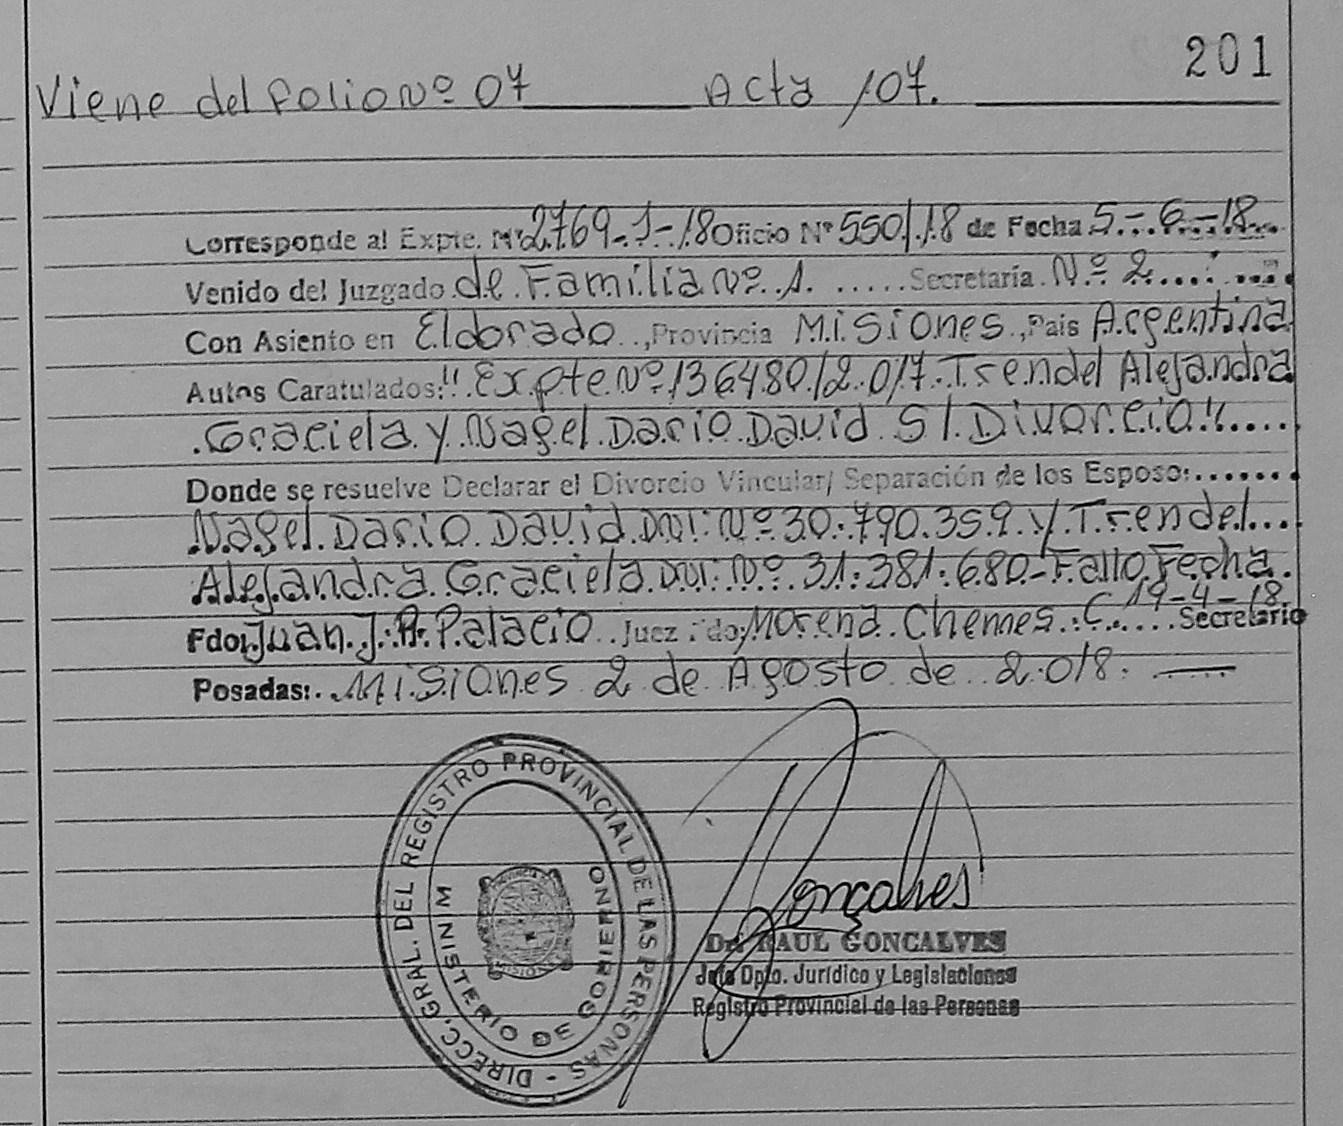 201
Viene del folio Nº 07 Acta 107.
Corresponde al Expte. Nº 2769-J-18 Oficio Nº 550/18 de Fecha 5-6-18
Venido del Juzgado de Familia Nº 1. Secretaría Nº 2
Con Asiento en Eldorado, Provincia Misiones, País Argentina
Autos Caratulados: "Expte Nº 136480/2017. Trendel Alejandra
Graciela y Nagel Dario David S/ Divorcio"
Donde se resuelve Declarar el Divorcio Vincular/ Separación de los Esposo:
Nagel Dario David DNI: Nº 30.790.359 y Trendel
Alejandra Graciela DNI: Nº 31.381.680 - Fallo Fecha
19-4-18
Fdo: Juan J. A. Palacio Juez Fdo; Morena Chemes. C. Secretario
Posadas: Misiones 2 de Agosto de 2018.
DIRECC. GRAL. DEL REGISTRO PROVINCIAL DE LAS PERSONAS -
MINISTERIO DE GOBIERNO
MISIONES
Gonçalves
Dr. RAUL GONCALVES
Jefe Dpto. Jurídico y Legislaciones
Registro Provincial de las Personas